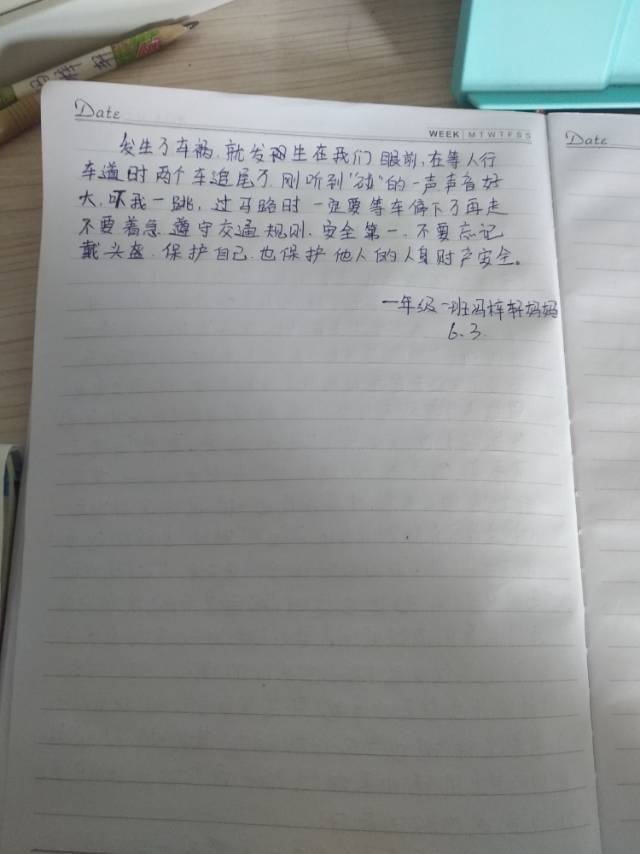 Date
WEEK M T W T F S S
Date
发生了车祸.就发生在我们眼前,在等人行
车道时两个车追尾了.刚听到"的一声声音好
大,吓我一跳,过马路时一定要等车停下了再走
不要着急.遵守交通规则.安全第一.不要忘记
戴头盔.保护自己.也保护他人的人身财产安全。
一年级一班冯梓轩妈妈
6.3.